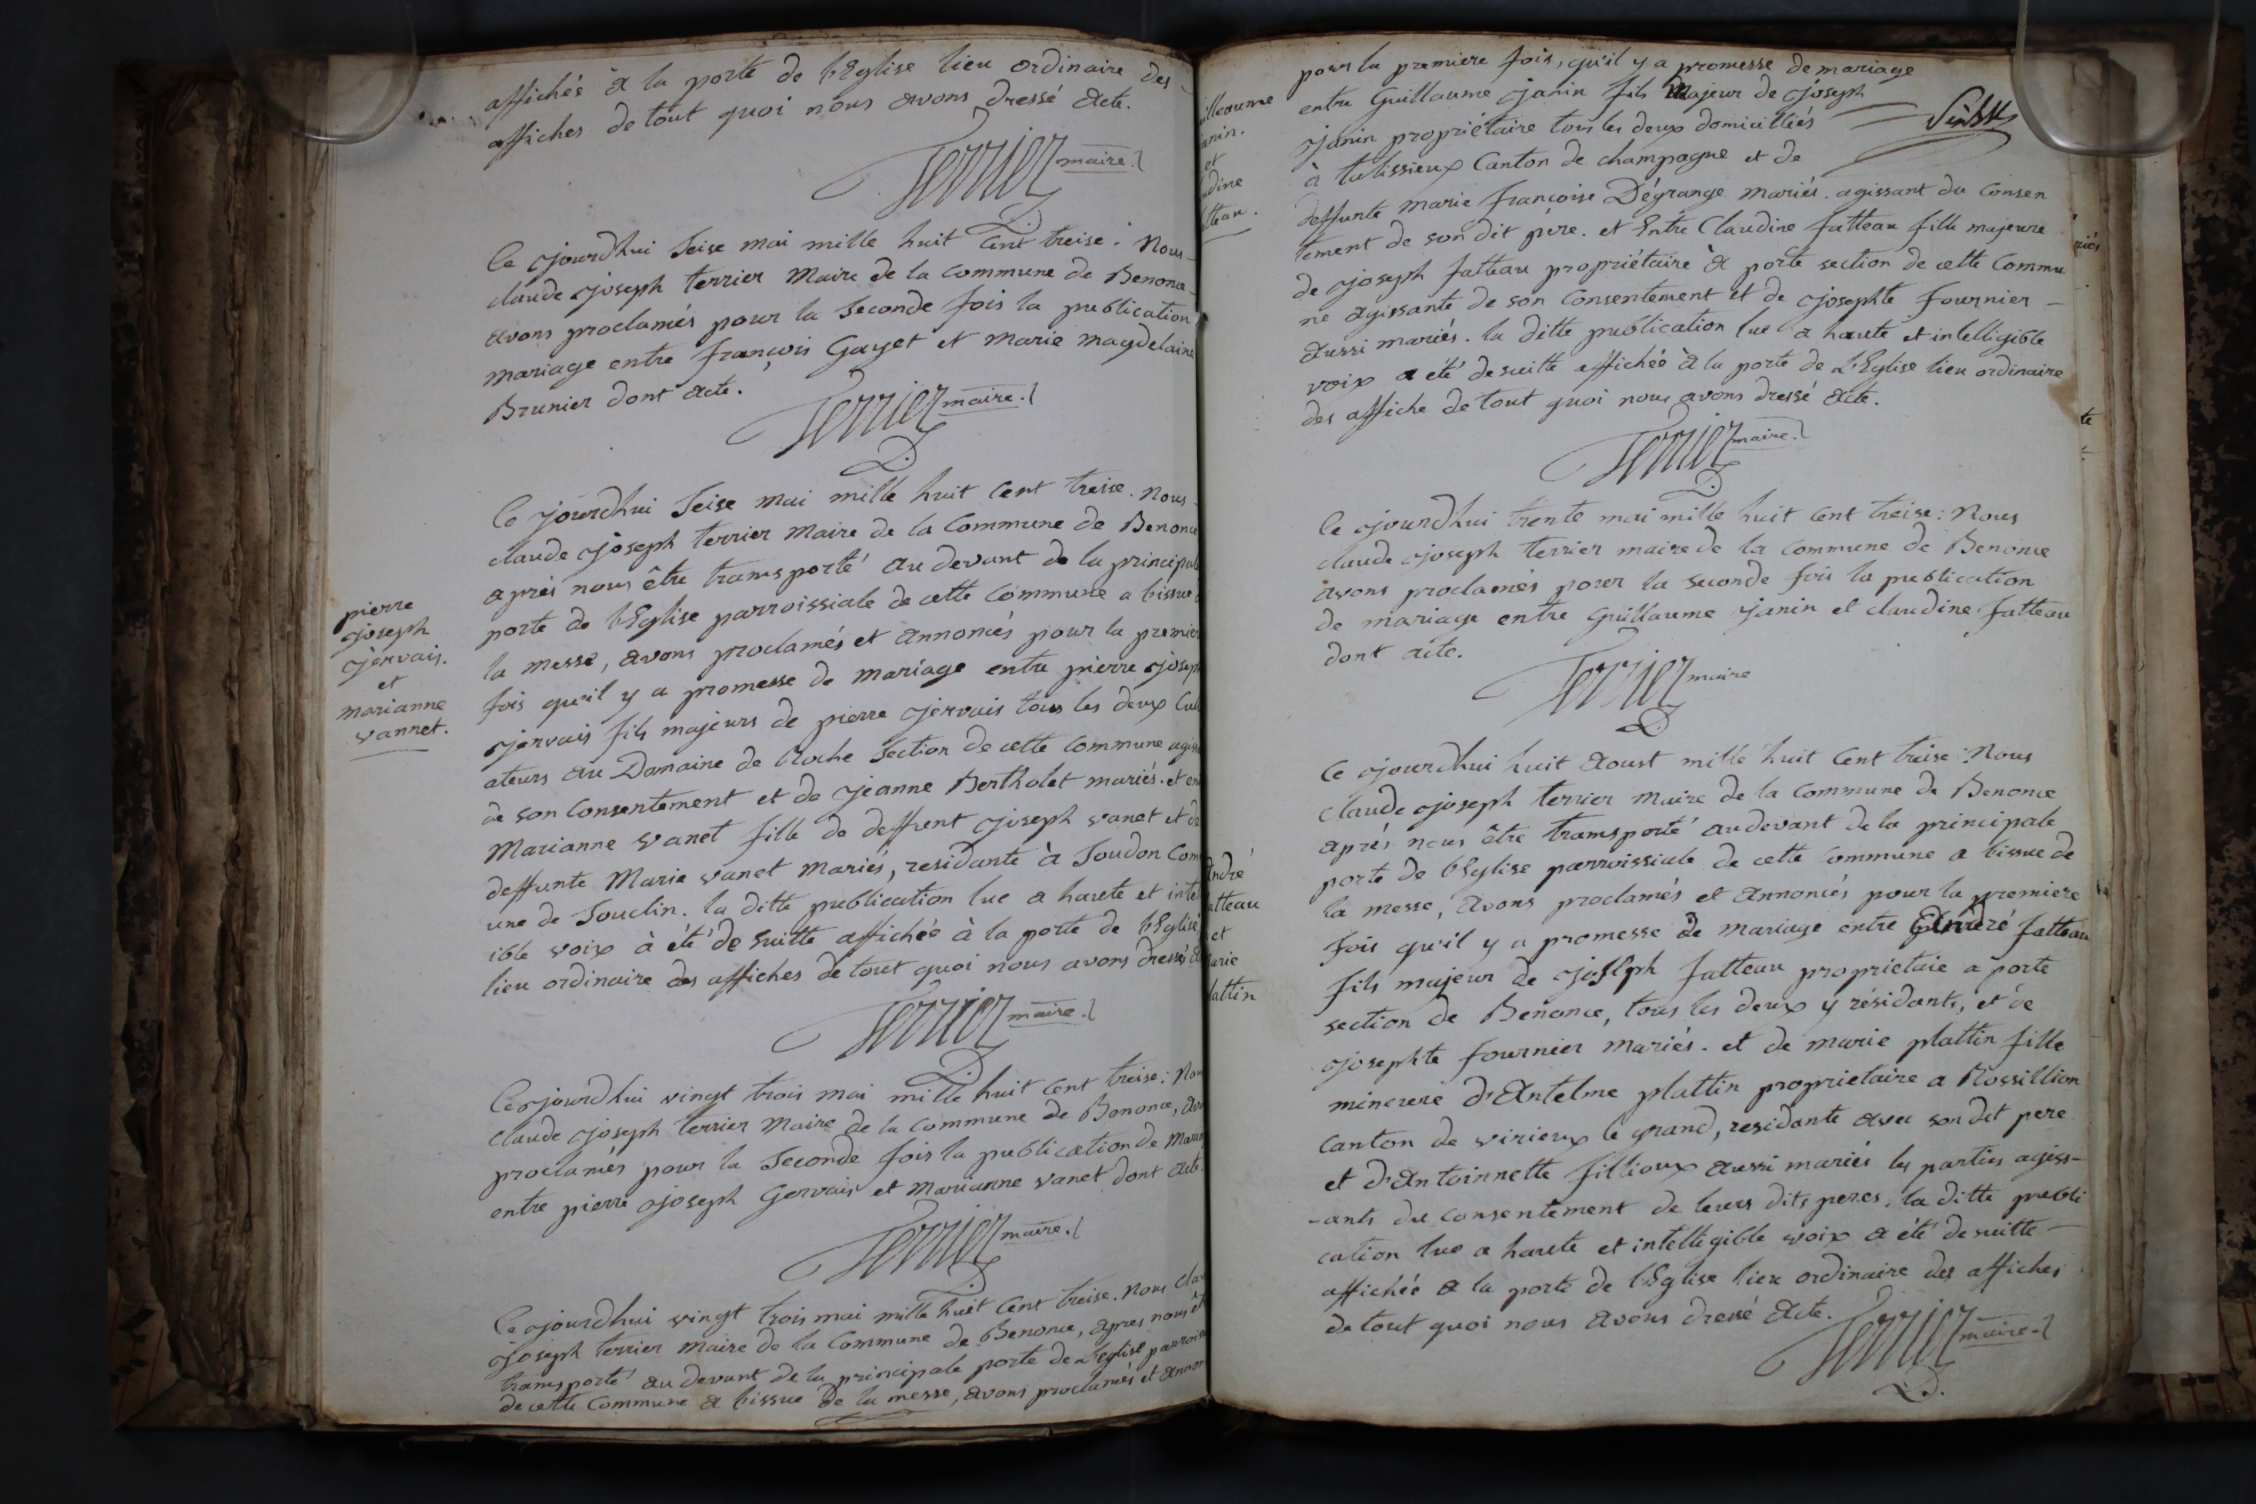 affichés à la porte de l'Eglise lieu ordinaire des
affiches de tout quoi nous avons dressé acte.
Terrier maire.
Ce jourdhui seise mai mille huit cent treise. Nous
claude joseph terrier Maire de la commune de Benonce
avons proclamés pour la seconde fois la publication
mariage entre françois Gayet et marie magdelaine
Brunier dont acte.
Terrier maire.
pierre
joseph
jervais.
et
marianne
vannet.
Ce jourdhui seise mai mille huit cent treise. Nous
claude joseph terrier Maire de la Commune de Benonce
après nous être transporté au devant de la principale
porte de l'Eglise parroissiale de cette Commune a l'issue d
la messe, avons proclamés et annoncés pour la premier
fois qu'il y a promesse de mariage entre pierre joseph
jervais fils majeurs de pierre jervais tous les deux Cul
ateurs au Domaine de Roche section de cette commune agiss
de son Consentement et de jeanne Bertholet mariés. et en
Marianne vanet fille de deffunt joseph vanet et de
deffunte Marie vanet mariés, residante à Soudon Com
une de Souclin. la ditte publication lue a haute et inte
ible voix à été de suitte affichée à la porte de l'Eglise
lieu ordinaire des affiches de tout quoi nous avons dressé
Terrier maire.
Ce jourdhui vingt trois mai mille huit cent treise: Nou
claude joseph terrier Maire de la Commune de Benonce, avo
proclamés pour la seconde fois la publication de Mar
entre pierre joseph Gervais et Marianne vanet dont acte.
Terrier maire.
Ce jourdhui vingt trois mai mille huit cent treise. Nous Clau
joseph terrier Maire de la Commune de Benonce, apres nous êt
transporté au devant de la principale porte de L'eglise parroiss
de cette Commune a l'issue de la messe, avons proclamés et annon
pour la premiere fois, qu'il y a promesse de mariage
illeaume
anin.
et
udine
tteau.
entre Guillaume janin fils Majeur de joseph
janin propriétaire tous les deux domiciliés
à tutissieux Canton de champagne et de
deffunte marie françoise Dégrange mariés. agissant du Consen
tement de son dit père. et Entre Claudine fatteau fille majeure
de joseph fatteau propriétaire à porte section de cette Commu
ne agissante de son Consentement et de josephte fournier
aussi mariés. la ditte publication lue a haute et intelligible
voix a été de suitte affichée à la porte de L'Eglise lieu ordinaire
des affiche de tout quoi nous avons dressé acte.
Terrier maire.
Ce jourdhui trente mai mille huit cent treise: Nous
claude joseph terrier maire de la commune de Benonce
avons proclamés pour la seconde fois la publication
de mariage entre Guillaume janin et claudine fatteau
dont acte.
Terrier maire
André
atteau
et
arie
lattin
Ce jourdhui huit aoust mille huit Cent treise: Nous
claude joseph terrier Maire de la Commune de Benonce
aprés nous être transporté audevant de la principale
porte de l'Eglise parroissiale de cette Commune a l'issue de
la messe, avons proclamés et annoncés pour la premiere
fois qu'il y a promesse de mariage entre André fatteau
fils majeur de joseph fatteau proprietaie a porte
section de Benonce, tous les deux y résidants, et de
josephte fournier mariés. et de marie plattin fille
minerure d'Antelme plattin proprietaire a Rossillion
Canton de virieux le grand, residante avec son dit pere
et d'Antoinnette fillioux aussi mariés les parties agiss-
-ants du consentement de leurs dits peres. la ditte publi
cation lue a haute et intelligible voix a été de suitte
affichée a la porte de l'Eglise lieu ordinaire des affiches
de tout quoi nous avons dressé acte.
Terrier maire.